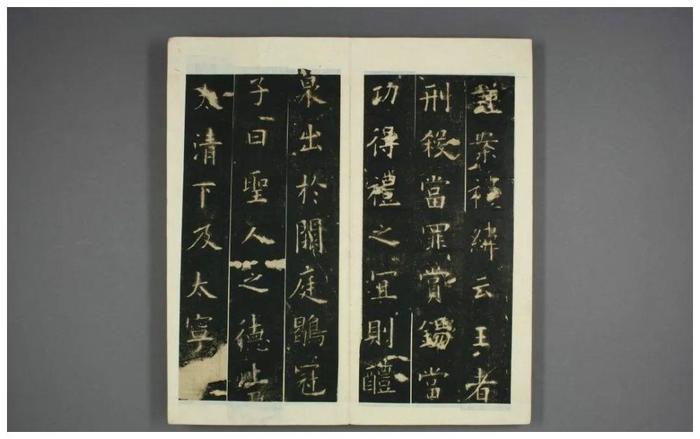 謹案禮緯云王者
刑殺當罪賞錫當
功得禮之冝則醴
泉出於闕庭鶡冠
子曰聖人之德上及
太清下及太寧